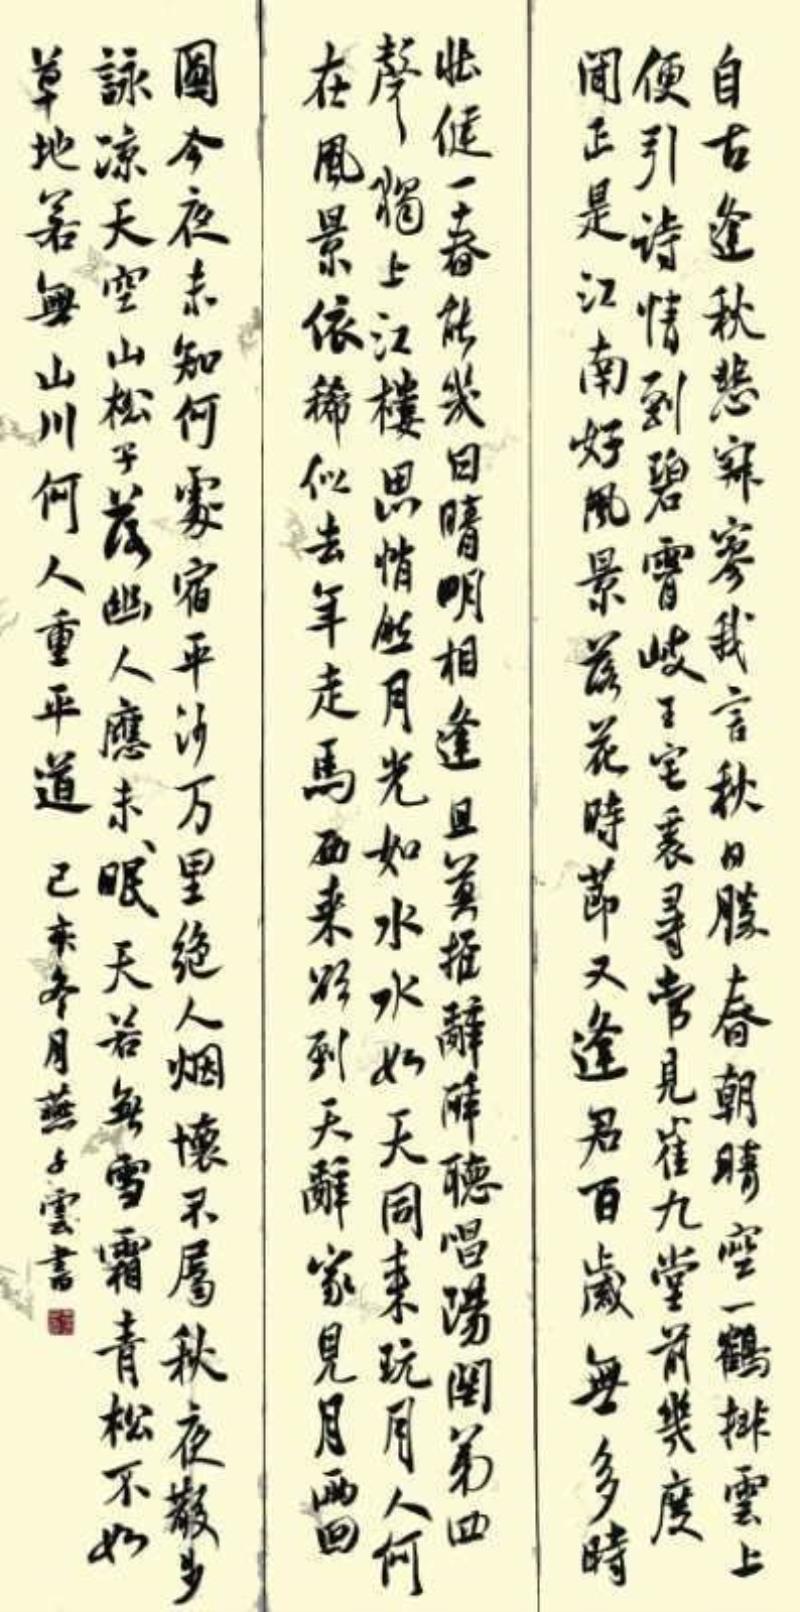 自古逢秋悲寂寥我言秋日勝春朝晴空一鶴排雲上
便引詩情到碧霄岐王宅裏尋常見崔九堂前幾度
聞正是江南好風景落花時節又逢君百歲無多時
壯健一春能幾日晴明相逢且莫推辭醉聽唱陽關第四
聲獨上江樓思悄然月光如水水如天同來玩月人何
在風景依稀似去年走馬西來欲到天辭家見月兩回
圓今夜未知何處宿平沙万里絕人烟懷君屬秋夜散步
詠凉天空山松子落幽人應未眠天若無雪霜青松不如
草地若無山川何人重平道
己亥冬月燕子雲書